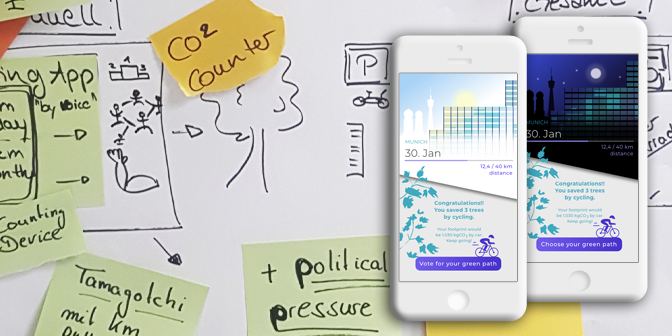 CO2
counter
ing App
"by voice"
1
2
3
P
Counting
Device
Tamagotchi
mit km
+ political
pressure
MUNICH
30. Jan
12,4 / 40 km
distance
Congratulations!!
You saved 3 trees
by cycling.
Your footprint would
be 1.030 kgCO2 by car.
Keep going!
Vote for your green path
MUNICH
30. Jan
12,4 / 40 km
distance
Congratulations!!
You saved 3 trees
by cycling.
Your footprint would
be 1.030 kgCO2 by car.
Keep going!
Choose your green path